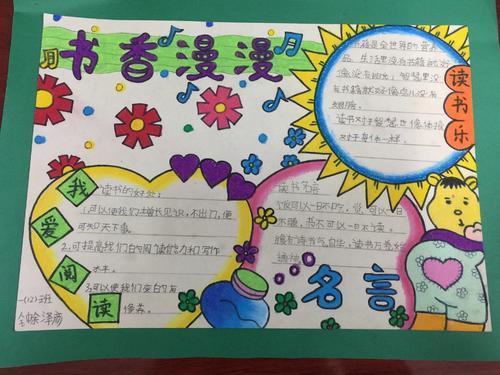 书香漫漫
读书乐
书籍是全世界的营养
品,生活里没有书籍就好
像没有阳光;智慧里没
有书籍就好像鸟儿没有
翅膀。
读书对于智慧也像体操
对于身体一样。
我爱阅读
读书的好处:
1.可以使我们增长见识,不出门,便
可知天下事。
2.可提高我们的阅读能力和写作
水平。
3.可以使我们变的有
修养。
读书名言
饭可以一日不吃,觉可以一日
不睡,书不可以一日不读。
腹有诗书气自华,读书万卷始
通神。
名言
一(2)班